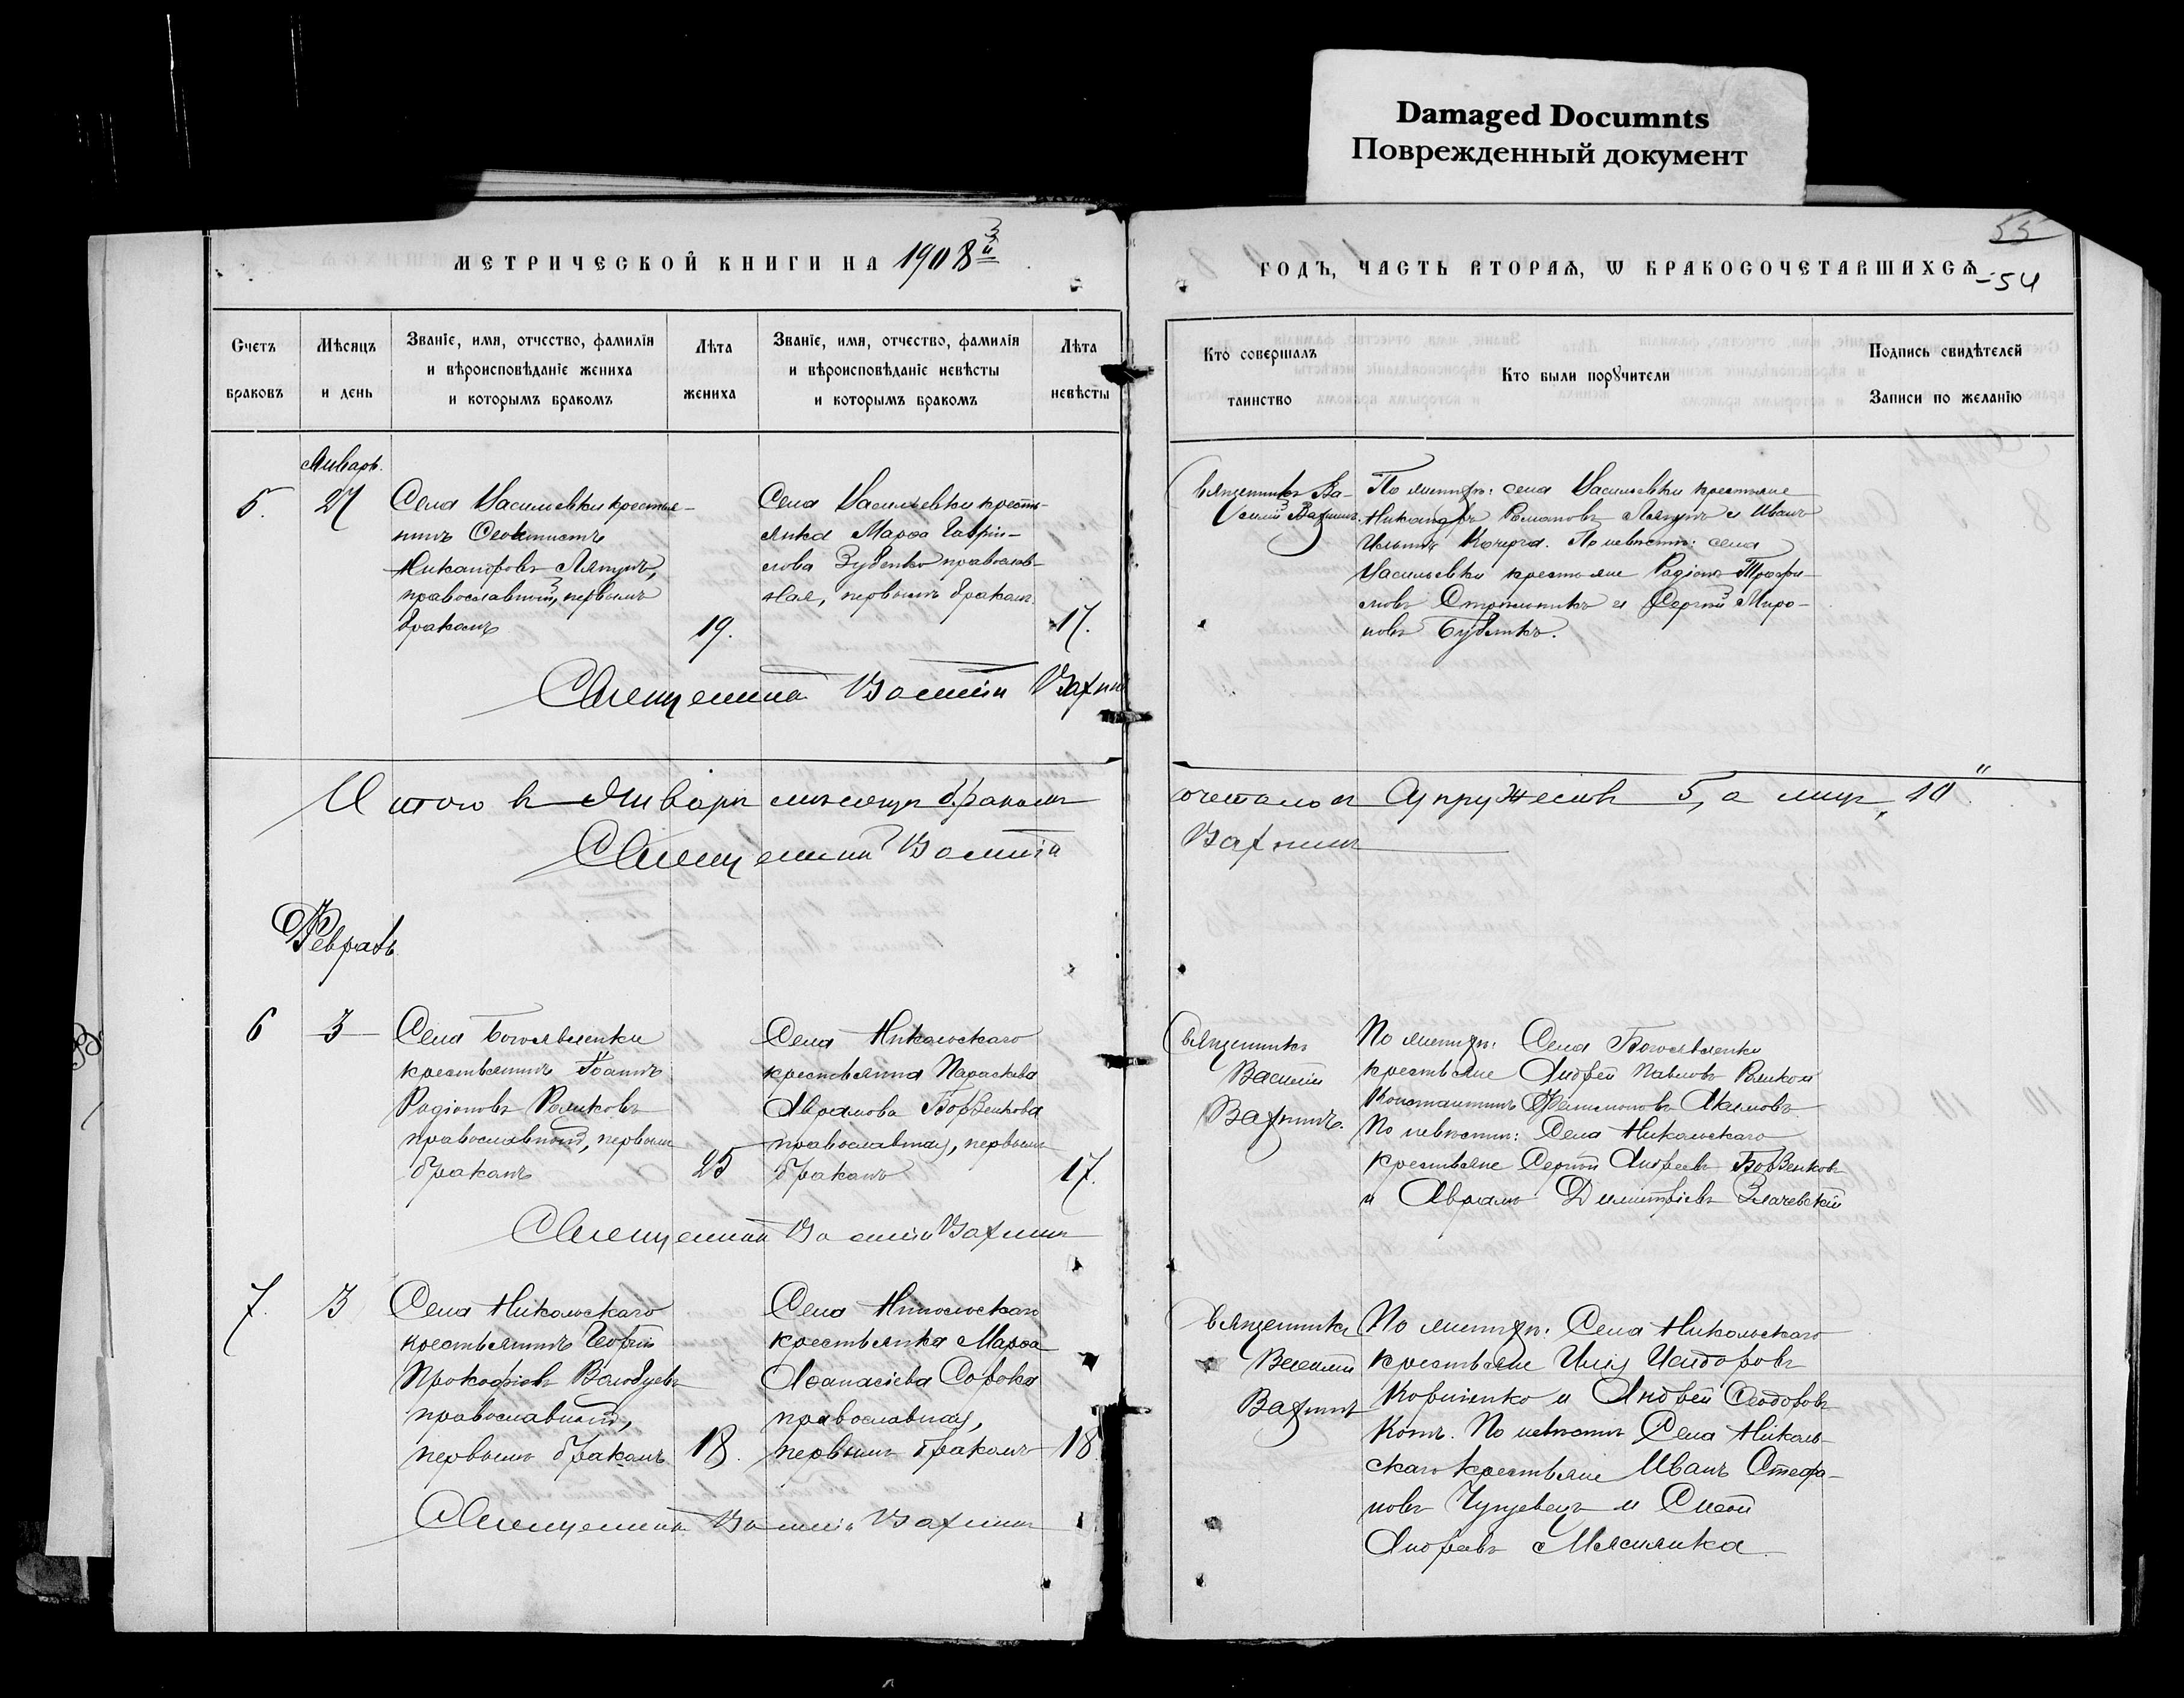 Damaged Documnts
Поврежденный документ
55
54
МЕТРИЧЕСКОЙ КНИГИ НА 1908й
ГОДЪ, ЧАСТЬ ВТОРАѦ, Ѡ БРАКОСОЧЕТАВШИХСѦ
Счетъ браковъ
Мѣсяцъ и день
Званіе, имя, отчество, фамилія
и вѣроисповѣданіе жениха
и которымъ бракомъ
Лѣта жениха
Званіе, имя, отчество, фамилія
и вѣроисповѣданіе невѣсты
и которымъ бракомъ
Лѣта невѣсты
Кто совершалъ таинство
Кто были порꙋчители
Подпись свидѣтелей
Записи по желанію
Январь
5.
27
Села Васильевки крестья-
нинъ Ѳеоктистъ
Никаноровъ Ляпунъ,
православный, первымъ
бракомъ
19.
Села Васильевки кресть-
янка Марѳа Гаврі-
лова Зубенко православ-
ная, первымъ бракомъ
17.
Священникъ Ва-
силій Вахнинъ.
По женихѣ: села Васильевки крестьяне
Романовъ Ляпунъ и Иванъ
Ильинъ Кочерга. По невѣстѣ: села
Васильевки крестьяне Родіонъ Трофи-
мовъ и Сергій Миро-
новъ
Священникъ Василій Вахнинъ
Итого въ Январѣ мѣсяцѣ бракомъ
сочеталось супружествъ 5, а лицъ 10
Священникъ Василій
Вахнинъ
Февраль
6
3
Села Богоявленки
крестьянинъ Іоаннъ
Родіоновъ
православный, первымъ
бракомъ
25
Села Никольскаго
крестьянка Параскева
Аврамова Борзенкова
православная, первымъ
бракомъ
17.
Священникъ
Василій
Вахнинъ.
По женихѣ: Села Богоявленки
крестьяне Андрей Павловъ
Константинъ Филимоновъ Акимовъ.
По невѣстѣ: Села Никольскаго
крестьяне Сергій Андреевъ Борзенковъ
и Аврамъ Димитріевъ
Священникъ Василій Вахнинъ
7.
3
Села Никольскаго
крестьянинъ Георгій
Прокофіевъ
православный,
первымъ бракомъ
18.
Села Никольскаго
крестьянка Марѳа
Аѳанасіева Сорока
православная,
первымъ бракомъ
18
Священникъ
Василій
Вахнинъ
По женихѣ: Села Никольскаго
крестьяне Илія Исидоровъ
Корниенко и Андрей Ѳеодоровъ
Котъ. По невѣстѣ Села Николь-
скаго крестьяне Иванъ Стефа-
новъ и
Андреевъ Маслянка
Священникъ Василій Вахнинъ